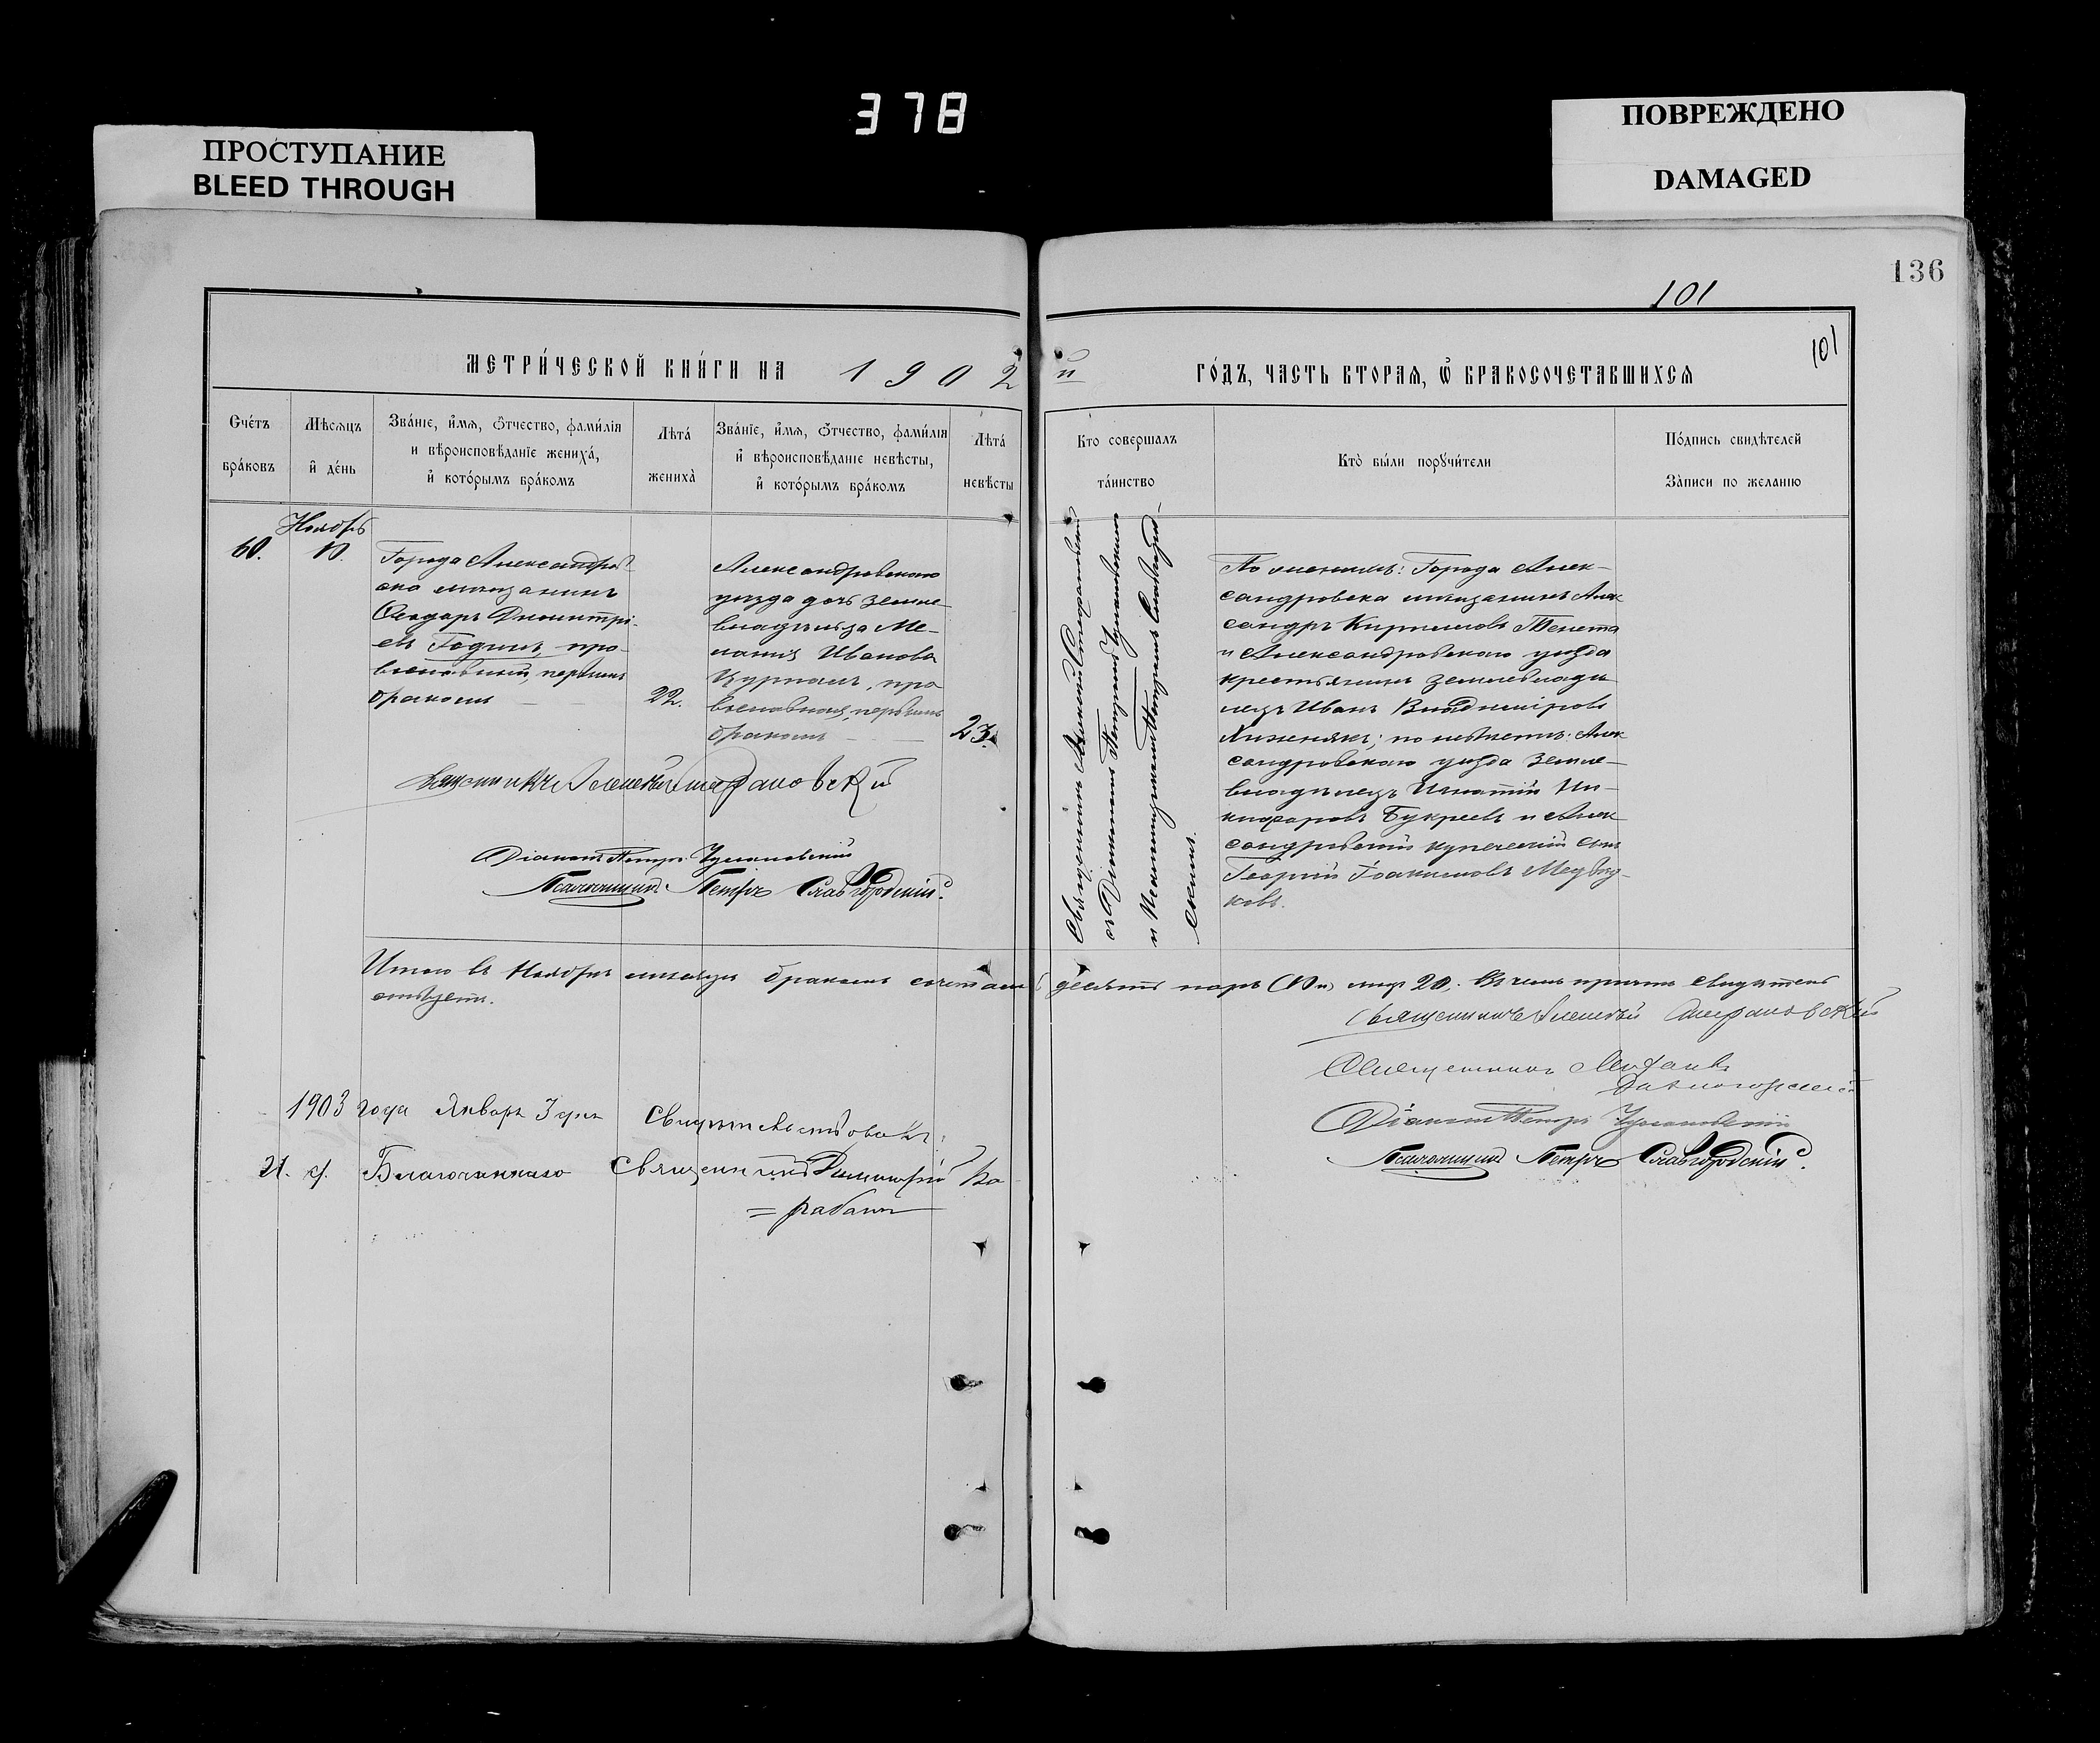 378
ПРОСТУПАНИЕ
BLEED THROUGH
ПОВРЕЖДЕНО
DAMAGED
136
101
101
МЕТРИ́ЧЕСКОЙ КНИ́ГИ НА 1902 й ГО́ДЪ, ЧАСТЬ ВТОРАѦ, Ѿ БРАКОСОЧЕТАВШИХСѦ
Сче́тъ
бра́ковъ
Мѣ́сѧцъ
и҆ де́нь
Зва́нїе, и҆́мѧ, ѻ҆́тчество, фами́лїѧ
и вѣроисповѣ́данїе жениха̀,
и҆ кото́рымъ бра́комъ
Лѣта̀
жениха̀
Зва́нїе, и҆́мѧ, ѻ҆́тчество, фами́лїѧ
и҆ вѣроисповѣ́данїе невѣ́сты,
и҆ кото́рымъ бра́комъ
Лѣта̀
невѣ́сты
Кто совершалъ
та́инство
Кто̀ бы́ли порꙋчи́тели
По́дпись свидѣ́телей
За́писи по жела́нїю
Ноябрь
60.
10.
Города Александров
ска мѣщанинъ
Ѳеодоръ Димитрі-
евъ Годинъ, пра-
вославный, первымъ
бракомъ
22.
Александровскаго
уѣзда дочь земле-
владѣльца Ме-
ланія Иванова
православная, первымъ
бракомъ
23.
Священникъ Алексѣй
съ Діакономъ Петромъ
и Псаломщикомъ Петромъ Славгород-
скимъ.
По женихѣ: Города Алек-
сандровска мѣщанинъ Алек
сандръ Кирилловъ Тенета
и Александровскаго уѣзда
крестьянинъ землевладѣ
лецъ Иванъ Владиміровъ
по невѣстѣ: Алек
сандровскаго уѣзда земле-
владѣлецъ Игнатій Ни-
кифоровъ Букреевъ и Алек
сандровскій купеческій сынъ
Георгій Іоакимовъ Медвѣд-
ковъ.
Священникъ Алексѣй
Діаконъ Петръ
Псаломщикъ Петръ Славгородскій.
Итого въ Ноябрѣ мѣсяцѣ бракомъ сочеталось десять паръ (10 п) лицъ 20. Въ чемъ причтъ свидѣтель
ствуетъ.
Священникъ Алексѣй
Священникъ
Діаконъ Петръ
Псаломщикъ Петръ Славгородскій.
1903 года Январь 3 дня свидѣтельствовалъ:
И. д. Благочиннаго Священникъ Димитрій Ка
=рабанъ